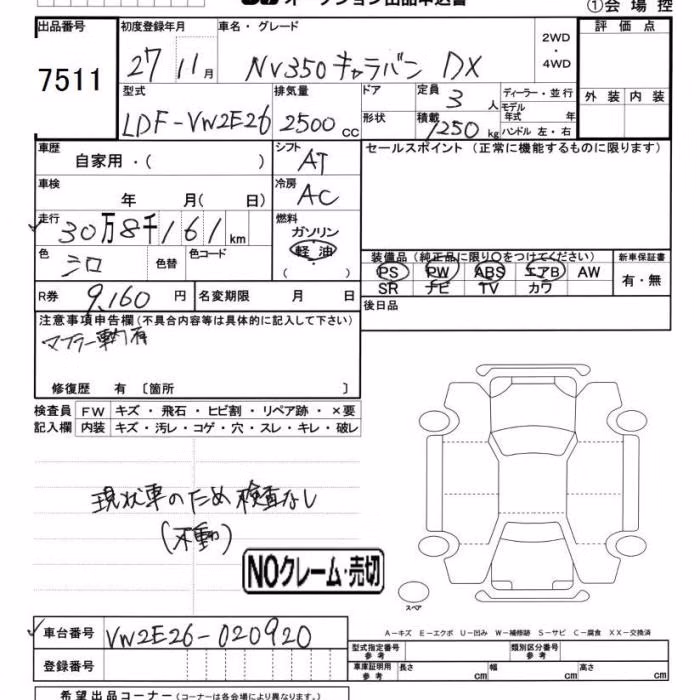 オークション出品申込書 ①会場控
出品番号 初度登録年月 車名・グレード 評価点
7511 27 11月 NV350キャラバン DX 2WD・4WD
型式 排気量 ドア 定員 ディーラー・並行 外装 内装
LDF-VW2E26 2500cc 3人 モデル年式 年
形状 積載 1250kg ハンドル 左・右
車歴 シフト セールスポイント (正常に機能するものに限ります)
自家用・( ) AT
車検 冷房
年 月(日) AC
走行 燃料
30万8千161km ガソリン
軽油
( )
色 色替 色コード
シロ
装備品 (純正品に限り○をつけてください) 新車保証書
PS PW ABS エアB AW 有・無
SR ナビ TV カワ
R券 9,160円 名変期限 月 日 後日品
注意事項申告欄 (不具合内容等は具体的に記入して下さい)
修復歴 有 〔箇所 〕
検査員 FW キズ・飛石・ヒビ割・リペア跡・×要
記入欄 内装 キズ・汚レ・コゲ・穴・スレ・キレ・破レ
現状車のため検査なし
(不動)
NOクレーム・売切
スペア
車台番号 VW2E26-020920
A-キズ E-エクボ U-凹み W-補修跡 S-サビ C-腐食 XX-交換済
登録番号
型式指定番号 参考 類別区分番号 参考
車庫証明用 参考 長さ cm 幅 cm 高さ cm
希望出品コーナー (コーナーは各会場により異なります。)